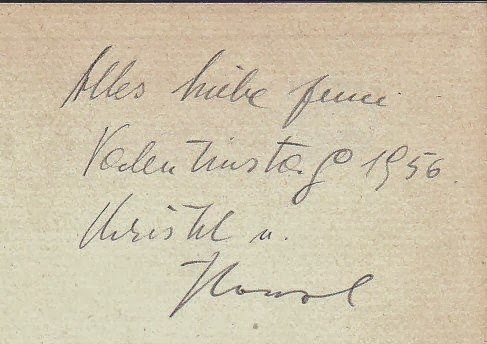 Alles Liebe zum
Valentinstag 1956.
Christl u.